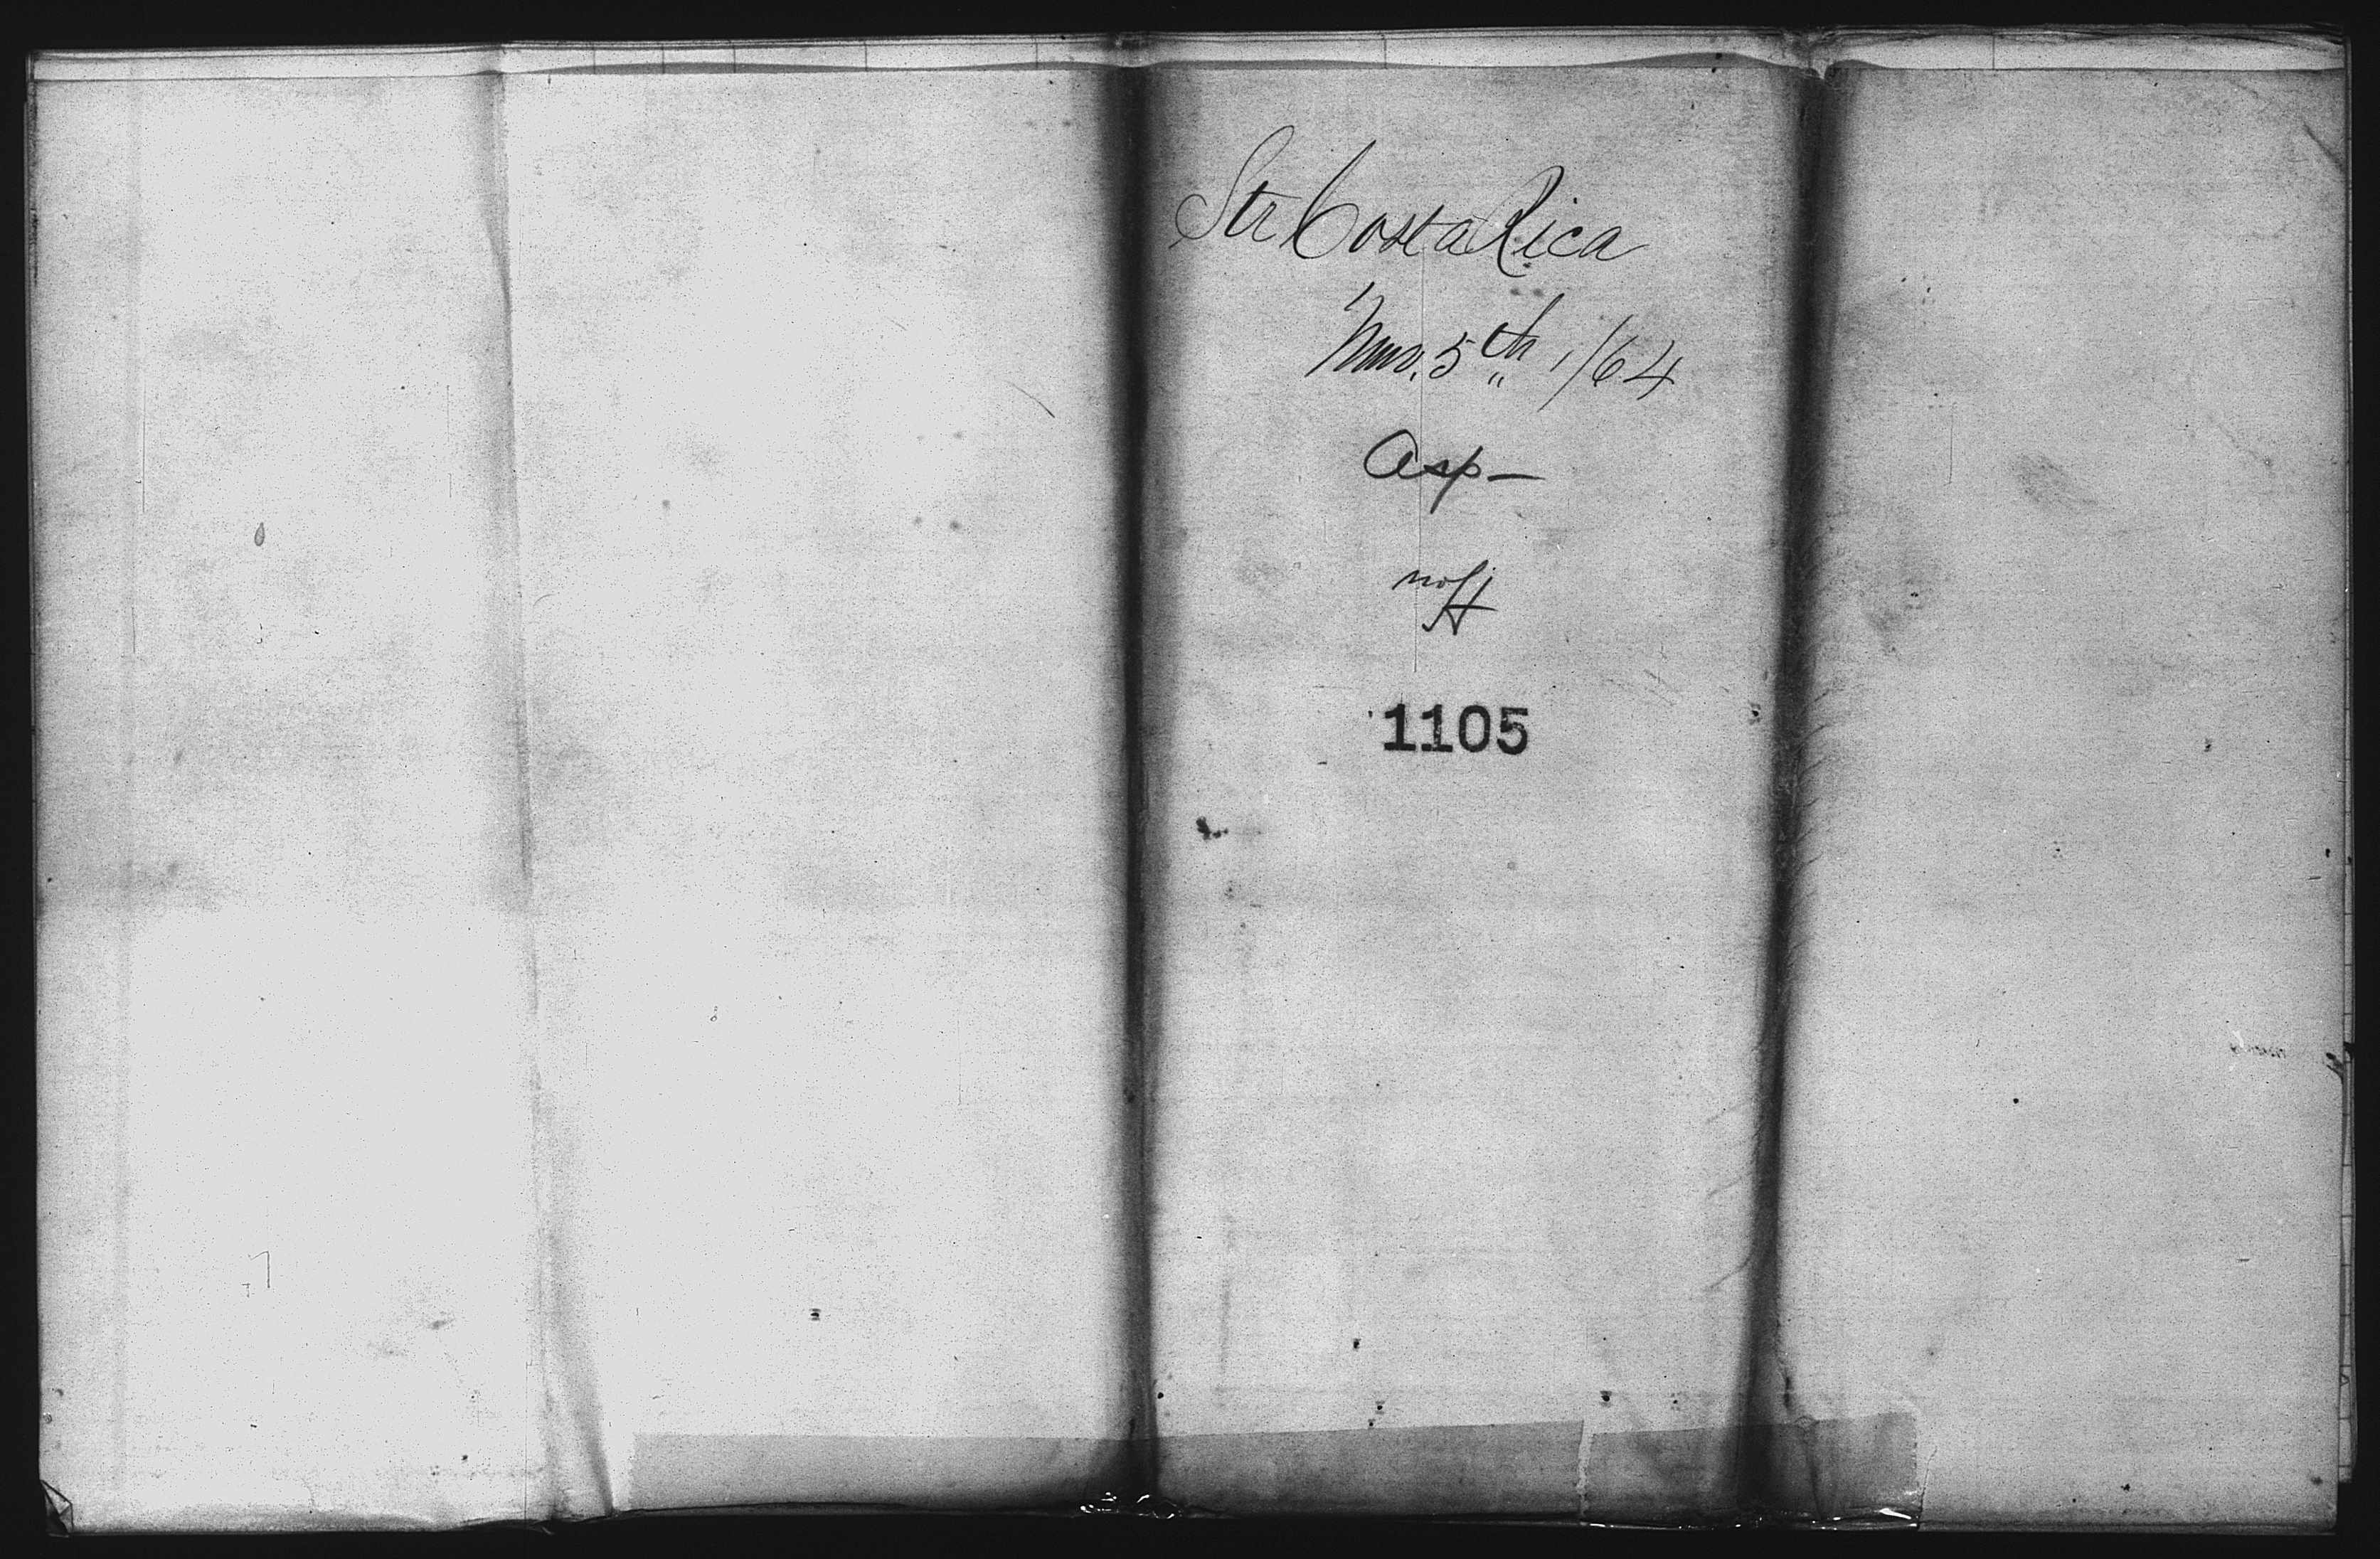 Str Costa Rica
Nov. 5th, /64
Asp—
1105